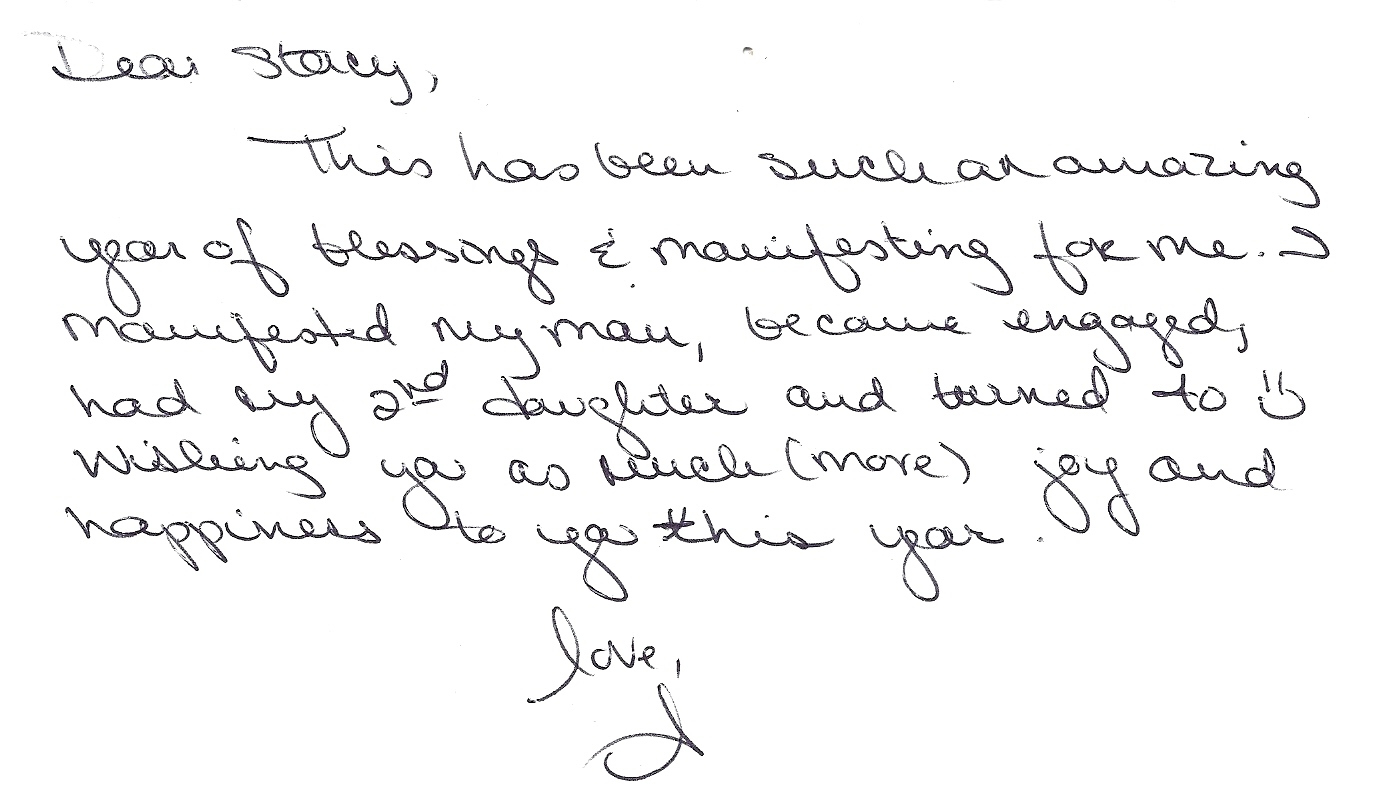 Dear Stacy,
This has been such an amazing
year of blessings & manifesting for me. I
manifested my man, became engaged,
had my 2nd daughter and turned 40 ü
Wishing you as much (more) joy and
happiness to you this year.
love,